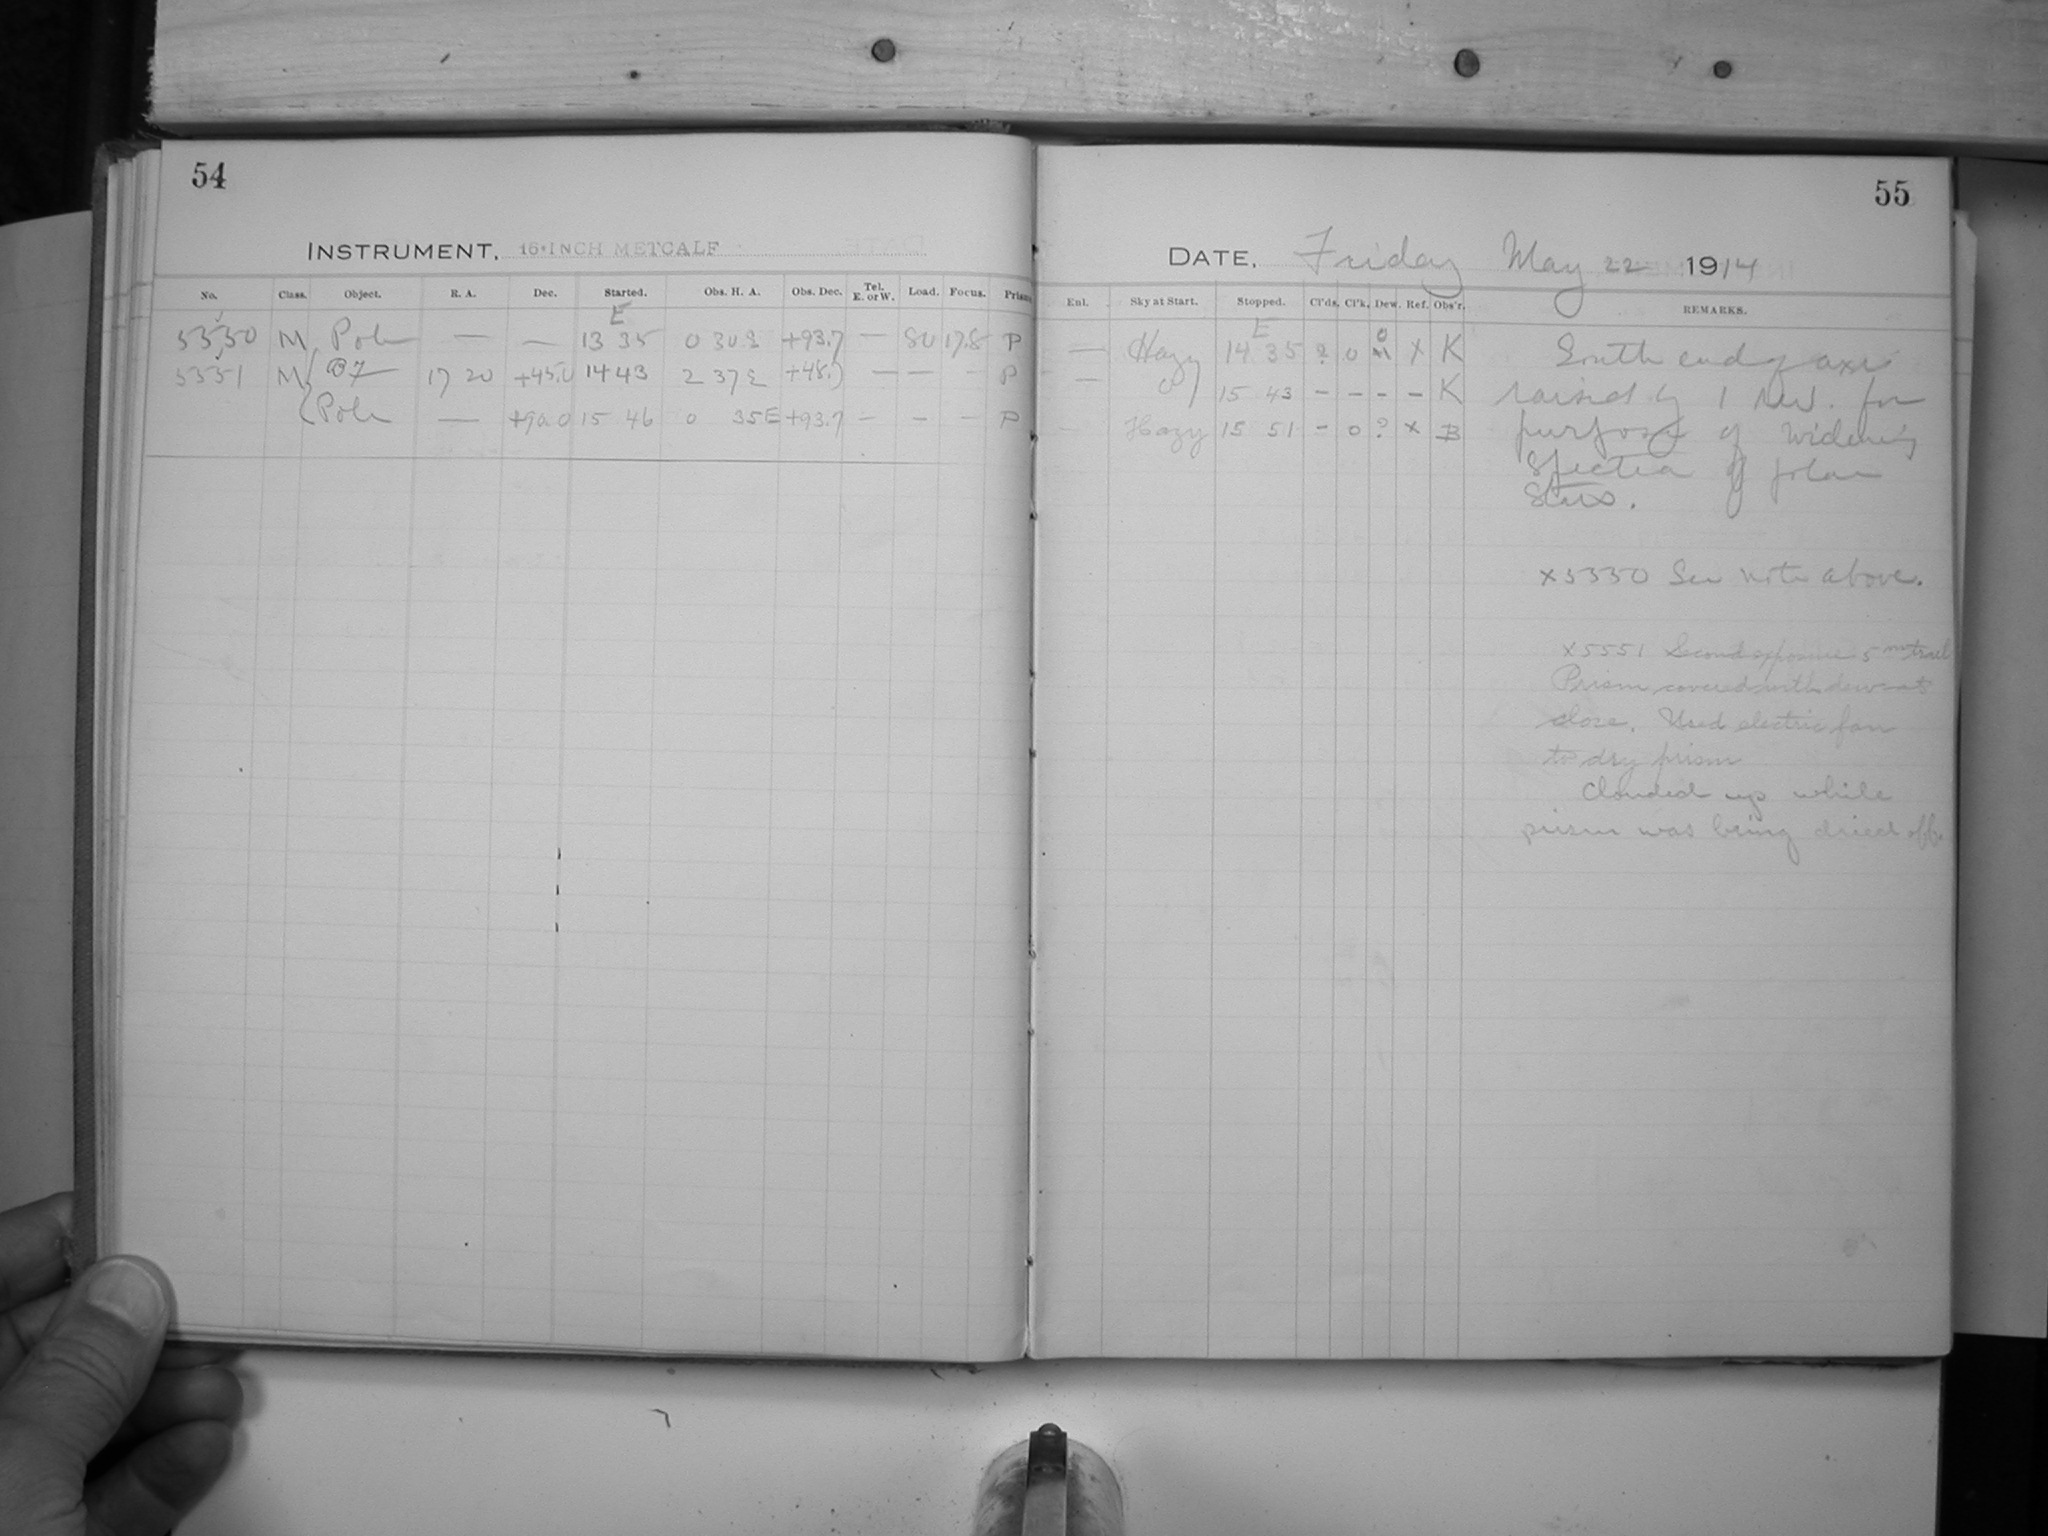 54
INSTRUMENT. 16-INCH METCALF
No. Class. Object. R. A. Dec. Started. Obs. H. A. Obs. Dec. Tel. E. or W. Load. Focus. Prism
E
5550 M Pole — — 13 35 0 30 E +93.7 — SU 17.8 P
5551 M 17 20 +45.0 14 43 2 37 E — — — P
Pole — +90.0 15 46 0 35 E +93.7 — — — P
55
DATE. Friday May 22 1914
Enl. Sky at Start. Stopped. Cl'ds. Cl'k. Dew. Ref. Obs'r. REMARKS.
E
— Hazy 14 35 ? 0 x K South end of axis
— 15 43 - - - - K raised by 1 rev. for
— Hazy 15 51 - 0 ? x B purpose of widening
spectra of polar
stars.
x5550 See note above.
x5551 Second exposure 5m trail
Prism covered with dew at
close. Used electric fan
to dry prism
Clouded up while
prism was being dried off.